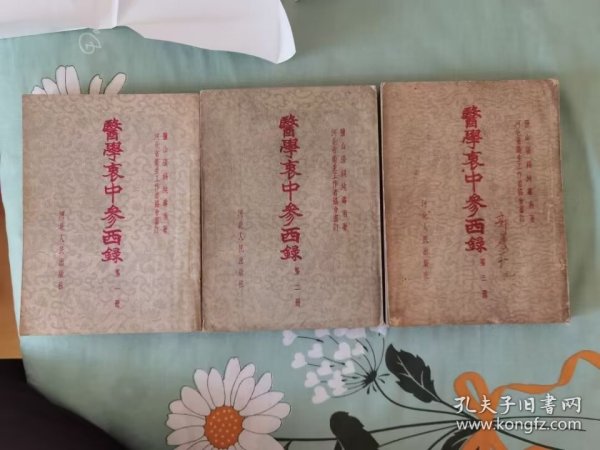 醫學衷中參西錄
第一冊
鹽山張錫純壽甫著
河北省衞生工作者協會審訂
河北人民出版社
醫學衷中參西錄
第二冊
鹽山張錫純壽甫著
河北省衞生工作者協會審訂
河北人民出版社
醫學衷中參西錄
第三冊
鹽山張錫純壽甫著
河北省衞生工作者協會審訂
河北人民出版社
孔夫子旧书网
www.kongfz.com